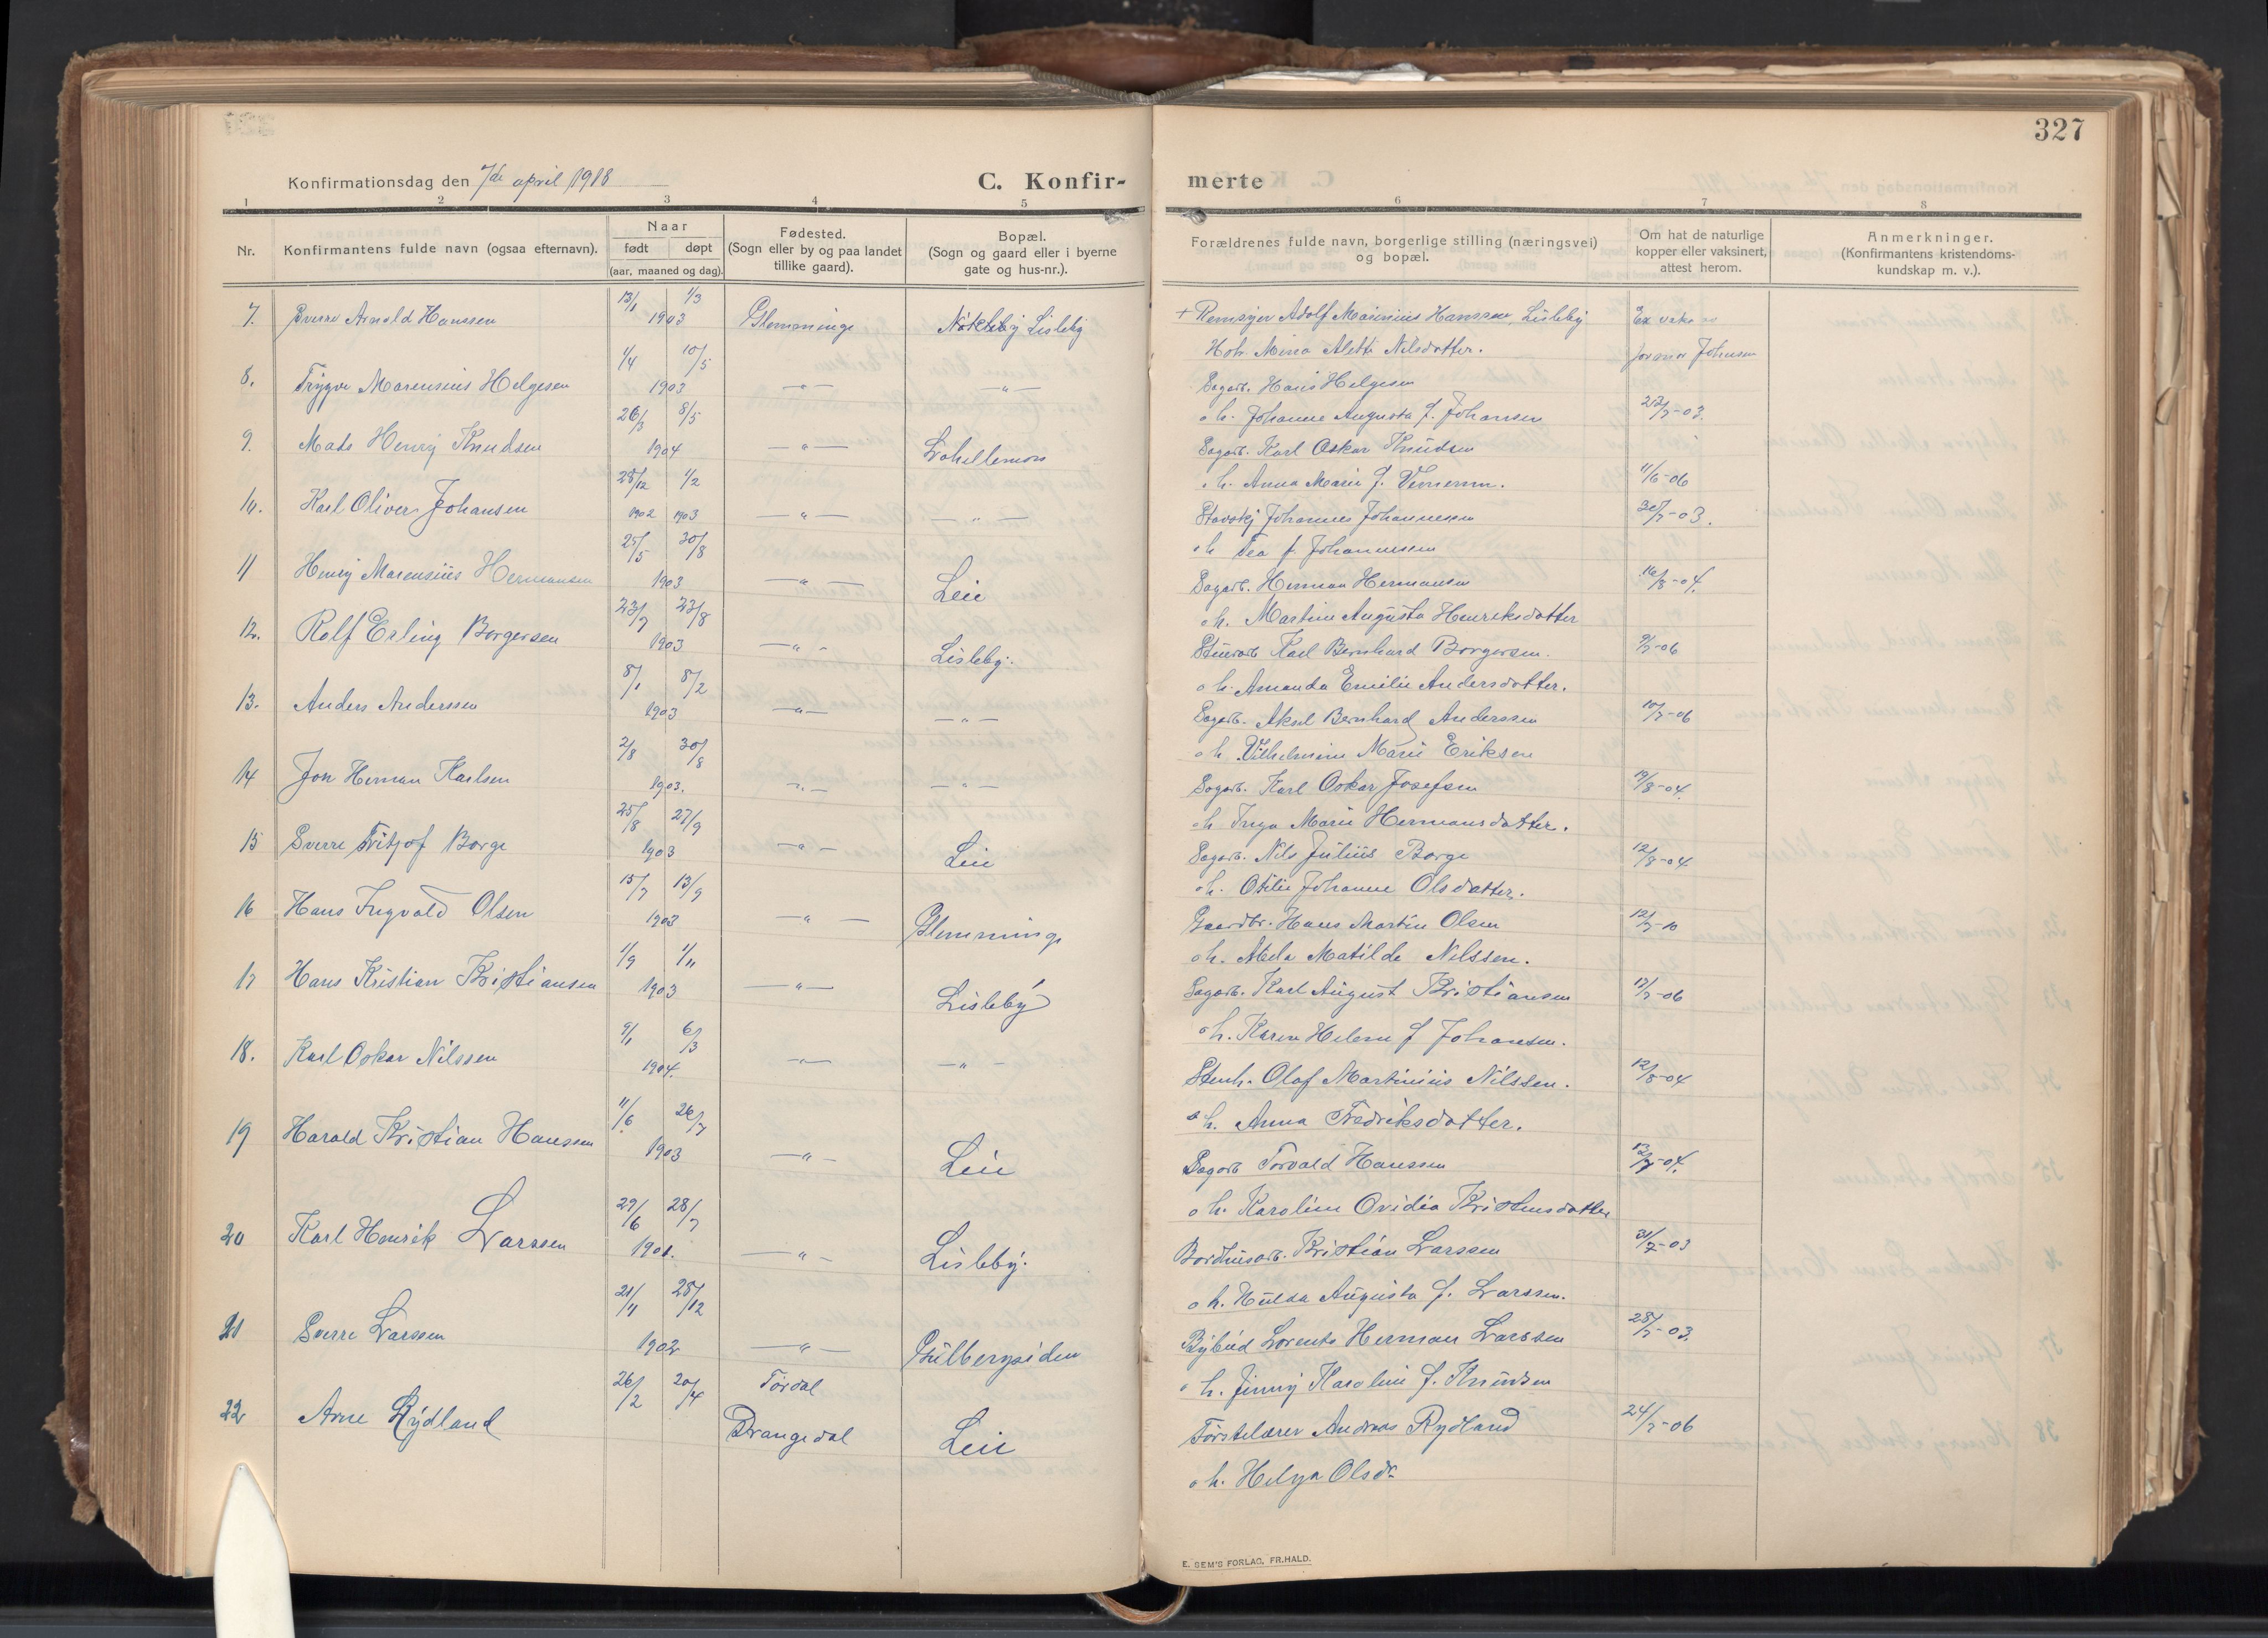 327
Konfirmationsdag den 7de april 1918
C. Konfir-
merte
1 2 3 4 5
6 7 8
Nr.
Konfirmantens fulde navn (ogsaa efternavn).
Naar
født døpt
(aar, maaned og dag).
Fødested.
(Sogn eller by og paa landet
tillike gaard).
Bopæl.
(Sogn og gaard eller i byerne
gate og hus-nr.).
Forældrenes fulde navn, borgerlige stilling (næringsvei)
og bopæl.
Om hat de naturlige
kopper eller vaksinert,
attest herom.
Anmerkninger.
(Konfirmantens kristendoms-
kundskap m. v.).
7. Sverre Arnold Hanssen 13/1 1/3 1903 Glemminge Nøkleby Lisleby
+ Remsyer Adolf Marinius Hanssen, Lisleby
Hstr. Mina Aletti Nilsdatter. Johnsen
8. Trygve Marensius Helgesen 1/4 10/5 1903 —"— —"—
Sagarb. Hans Helgesen
o h. Johanne Augusta f. Johansen 27/7-03.
9. Mats Henry Knudsen 26/3 8/5 1904 —"—
Sagarb. Karl Oskar Knudsen
o h. Anna Marie f. 11/6-06
10. Karl Oliver Johansen 28/12 1/2 1902 1903 —"— —"—
Johannes Johannessen 30/7-03.
o h Tea f. Johannessen
11 Henry Marensius Hermansen 25/5 30/8 1903 —"— Leie
Sagarb. Herman Hermansen 16/8-04.
o h. Martine Augusta Henriksdatter
12. Rolf Erling Borgersen 23/7 23/8 1903 —"— Lisleby.
Stenarb Karl Bernhard Borgersen. 9/7-06
o h. Amanda Emilie Andersdatter.
13. Anders Anderssen 8/1 8/2 1903 —"— —"—
Sagarb. Aksel Bernhard Anderssen 10/7-06
o h Vilhelmine Marie Eriksen
14 Jon Herman Karlsen 2/8 30/8 1903. —"— —"—
Sagarb. Karl Oskar Josefsen 19/8-04.
o h Inga Marie Hermansdatter.
15 Sverre Fritjof Borge 25/8 27/9 1903 —"— Leie
Sagarb. Nils Julius Borge 12/8-04
o h. Otilie Johanne Olsdatter.
16 Hans Ingvald Olsen 15/7 13/9 1903 —"— Glemminge
Gaardbr. Hans Martin Olsen 12/7-10
o h. Matilde Nilssen.
17 Hans Kristian Kristiansen 1/9 1/11 1903 —"— Lisleby
Sagarb. Karl August Kristiansen 17/7-06
o h. Karen Helene f Johansen.
18. Karl Oskar Nilssen 9/1 6/3 1904. —"— —"—
Stenh. Olaf Martinius Nilssen. 12/8-04
o h. Anna Fredriksdatter.
19 Harald Kristian Hanssen 11/6 26/7 1903 —"— Leie
Sagarb Torvald Hanssen 12/7-04.
o h. Karoline Ovidia Kristensdatter
20 Karl Henrik Larssen 29/6 28/7 1901. —"— Lisleby.
Bordhusarb. Kristian Larssen 31/7-03
o h. Hulda Augusta f. Larssen.
21 Sverre Larssen 21/11 28/12 1902 —"— Gulbergsiden
Bybud Lorents Herman Larssen 28/7-03.
o h. Jenny Karoline f. Knudsen
22 Arne Rydland 26/2 20/4 Tørdal Drangedal Leie
Førstelærer Andreas Rydland 24/7-06
o h. Helga Olsdr.
E. SEM'S FORLAG, FR.HALD.